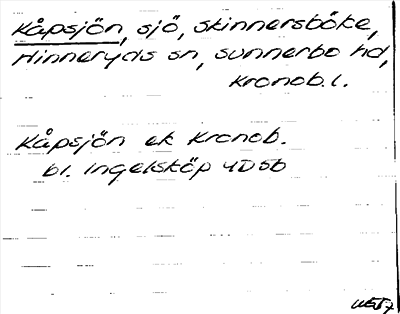 Kåpsjön, sjö, Skinnersböke,
Hinneryds sn, Sunnerbo hd,
Kronob. l.
Kåpsjön ek Kronob.
bl. Ingelsköp 4D5b